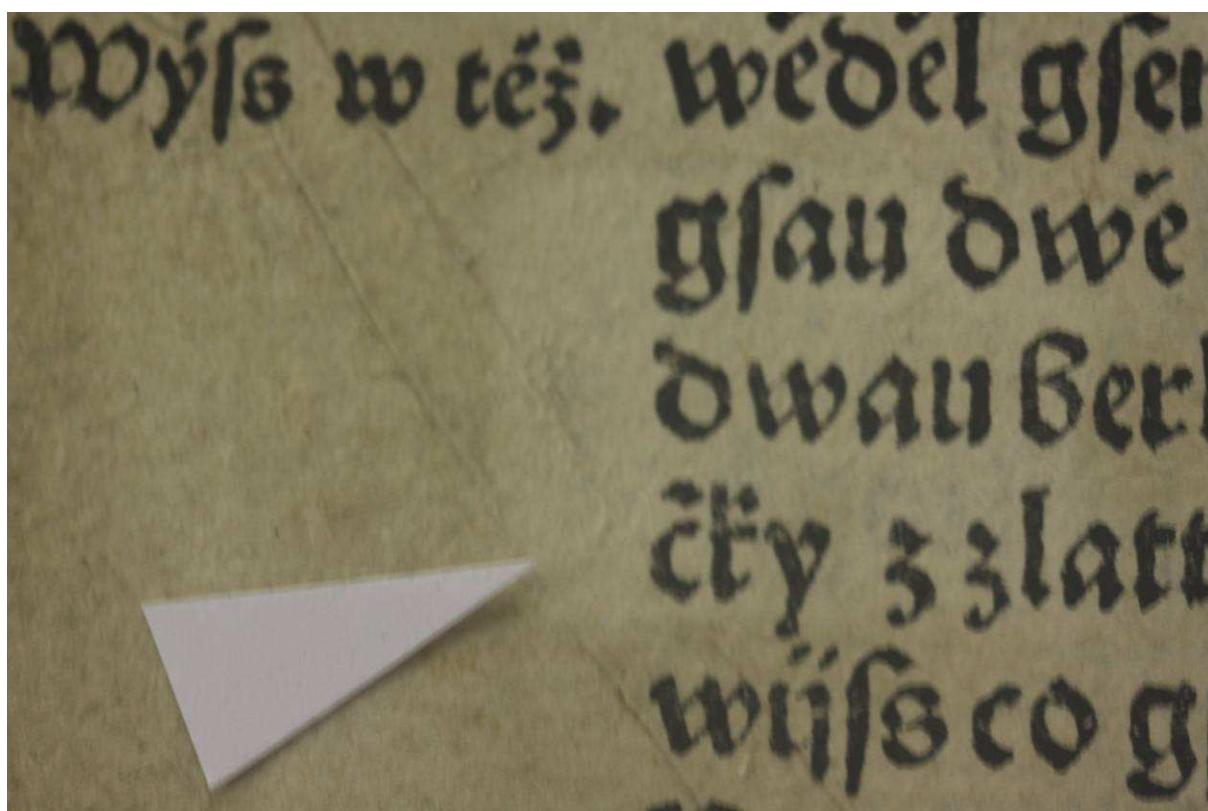 Wýſs w téż. wěděl gſem
gſau dwě
dwau
čky z zlatt
wijſs co